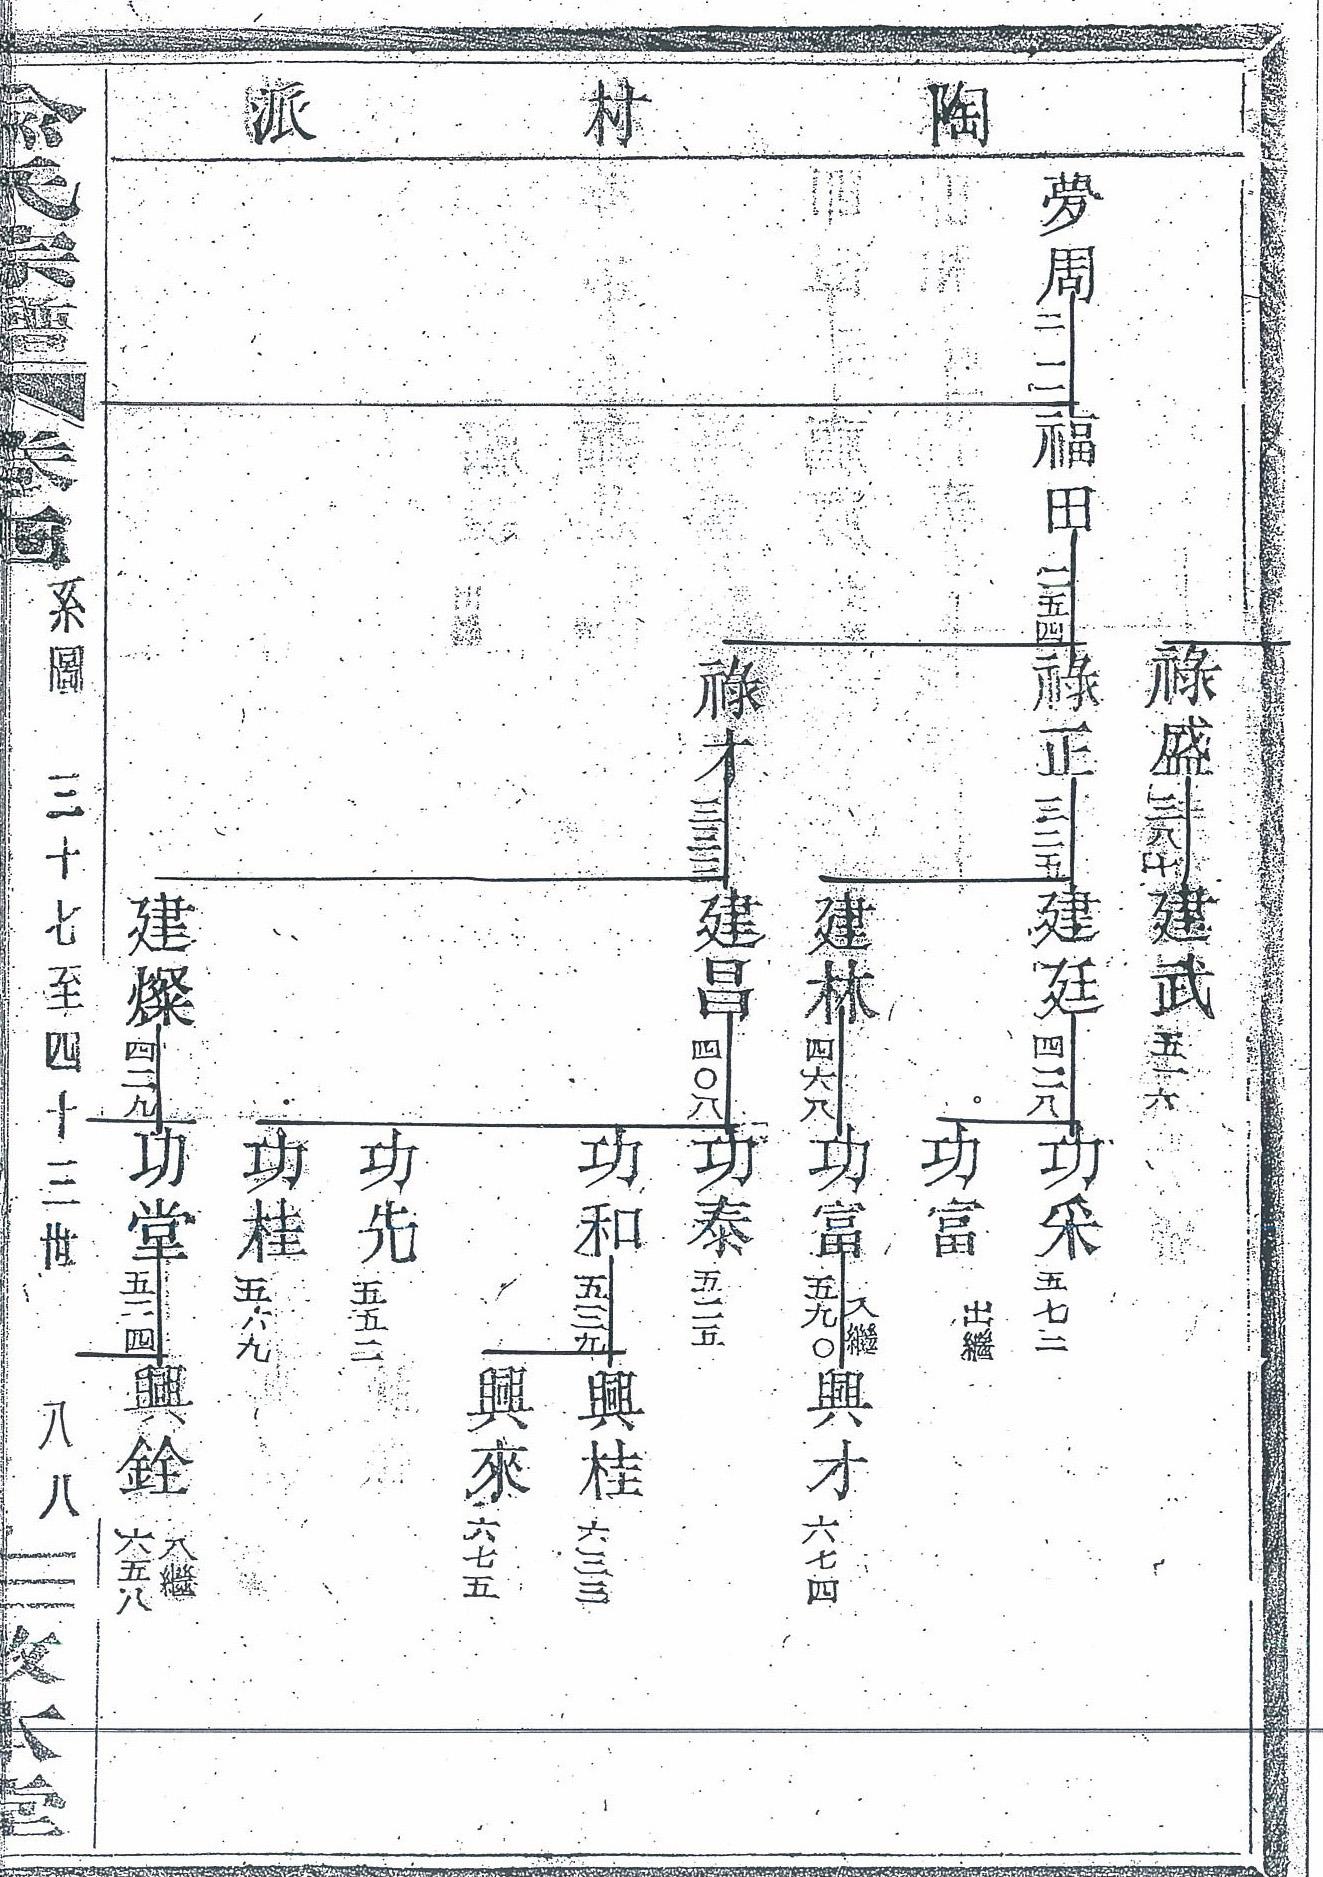 陶村派
夢周
福田 二五四
祿盛
祿正 三二五
祿才 三三三
建武 五一六
建廷 四二八
建林 四六八
建昌 四〇八
建燦 四二九
功采 五七二
功富 出繼
功富 五九〇 入繼
功泰 五二五
功和 五三九
功先 五五二
功桂 五六九
功堂 五一四
興才 六七四
興桂 六三三
興來 六七五
興銓 六五八 入繼
氏宗譜 卷
系圖 三十七至四十三世 八八